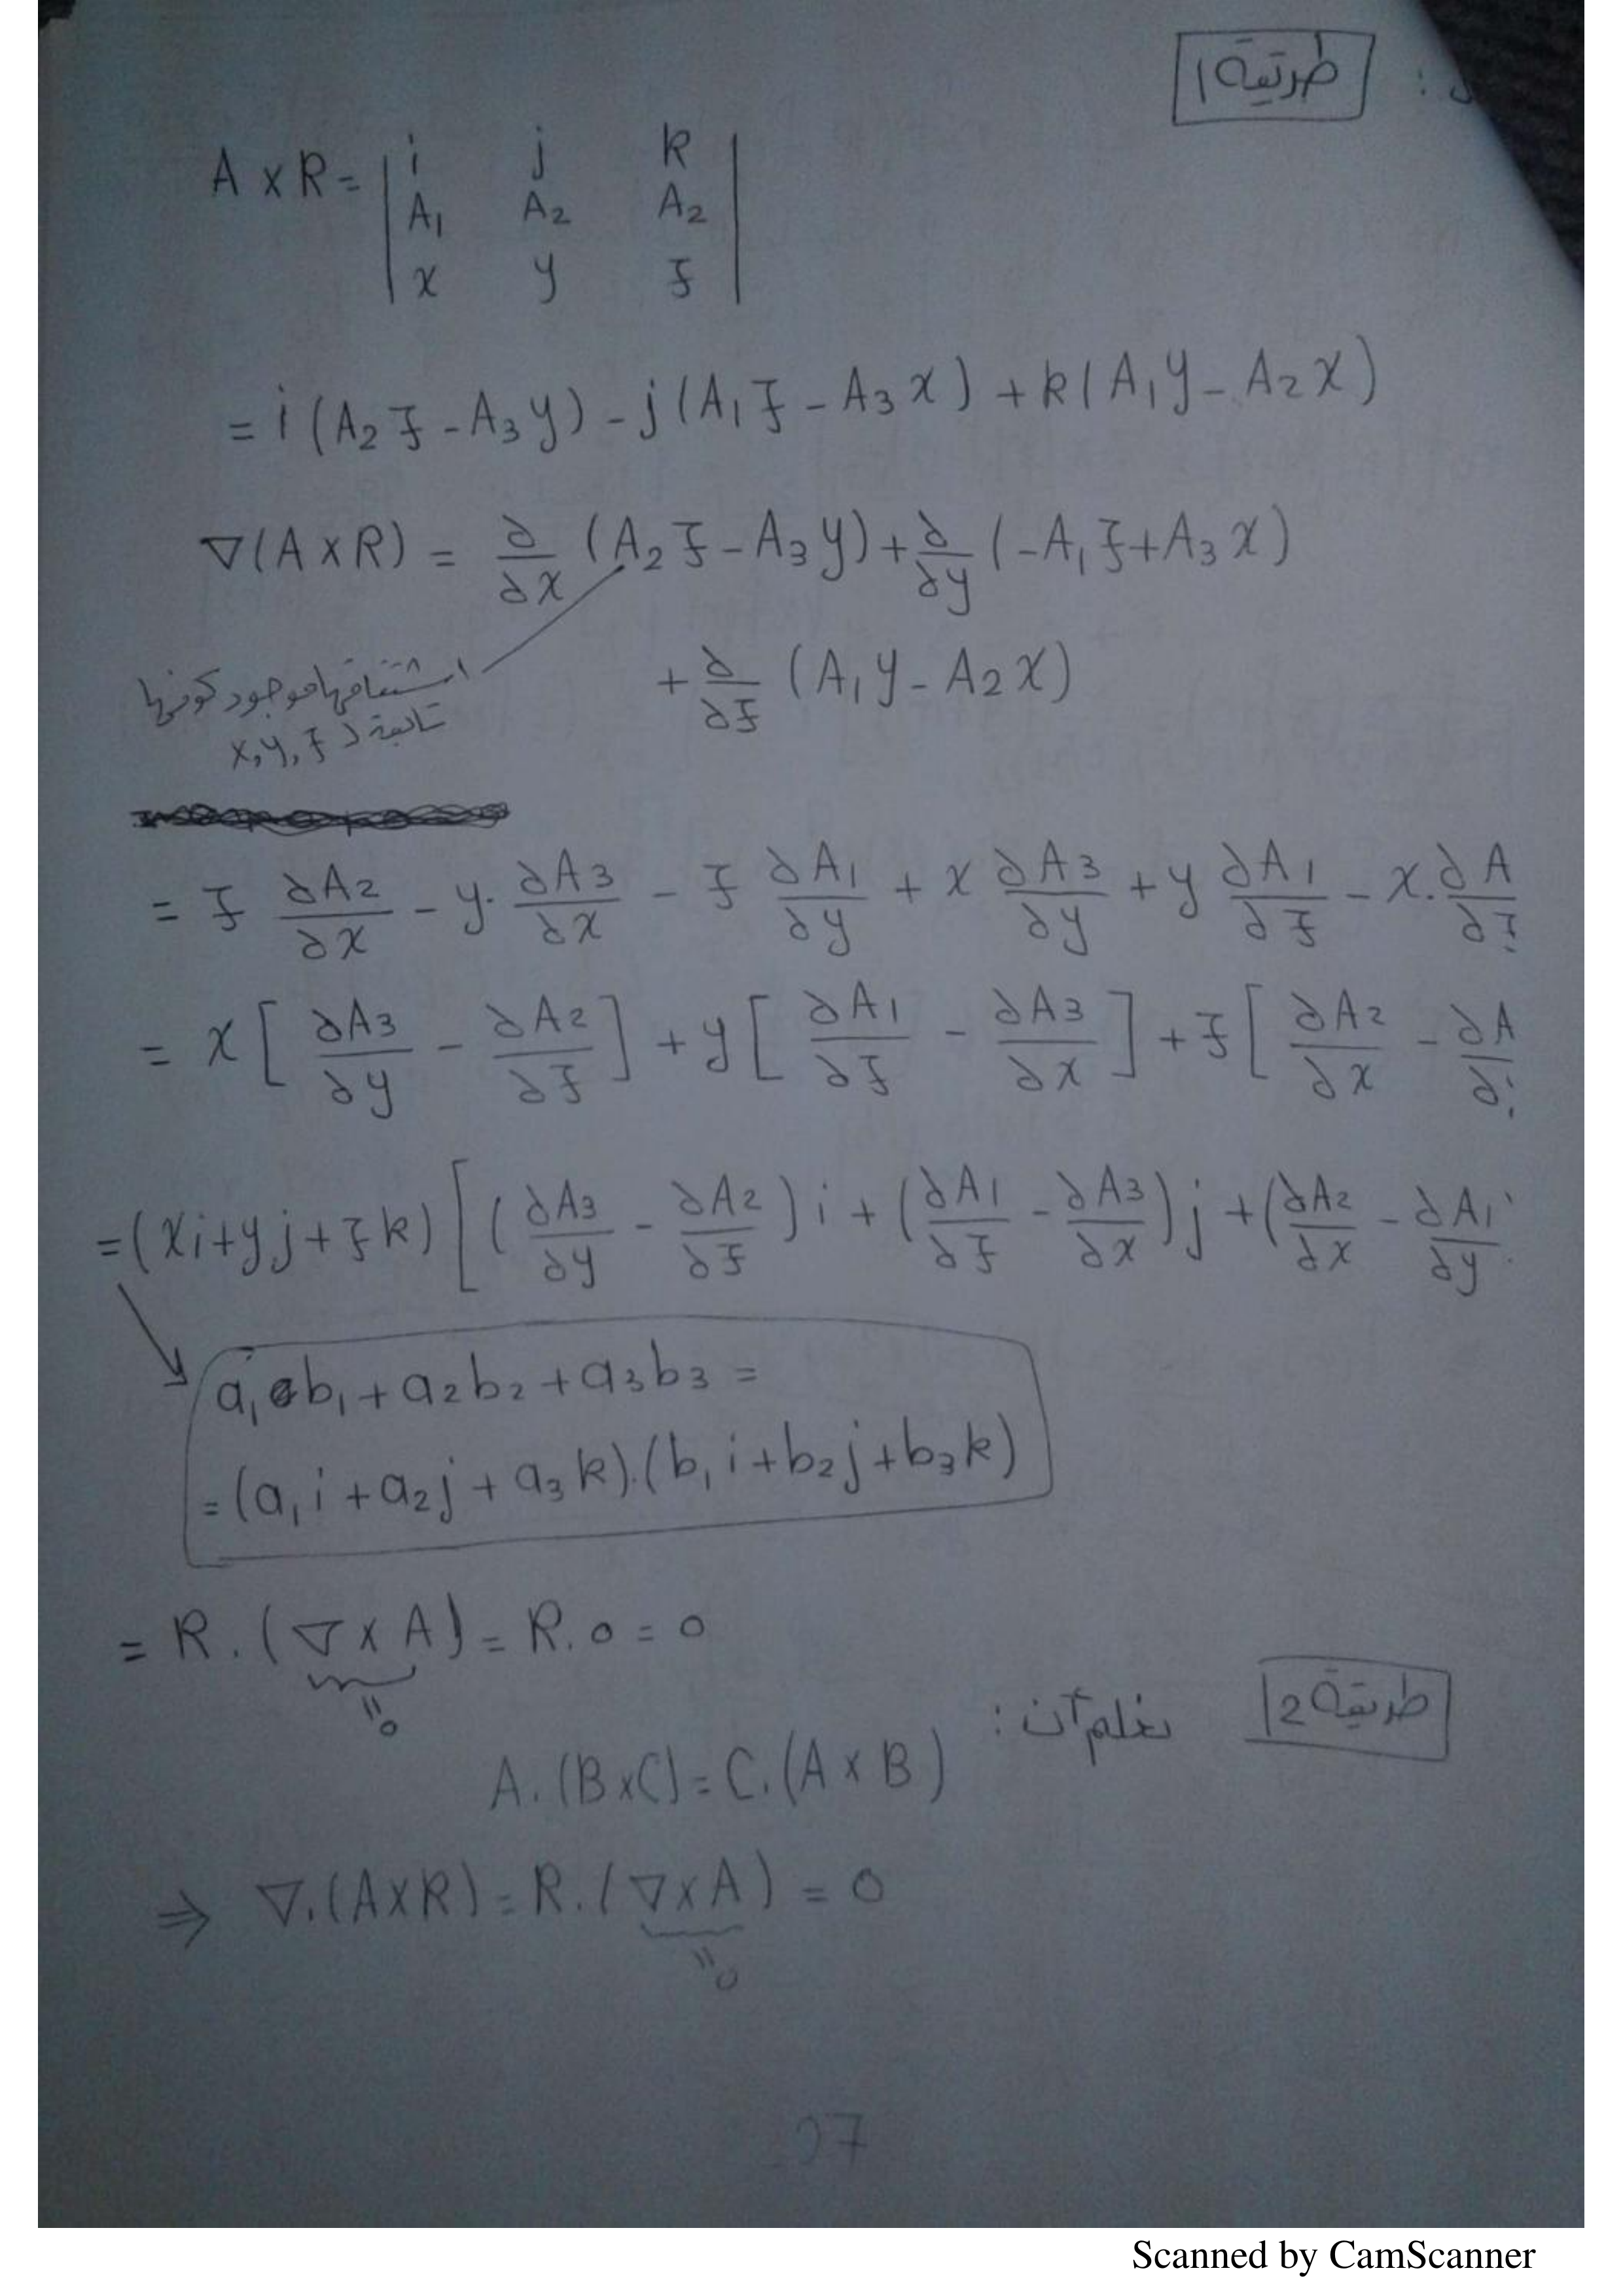 طريقة 1
A × R = | i j k |
| A₁ A₂ A₂ |
| x y z |
= i (A₂ z - A₃ y) - j (A₁ z - A₃ x) + k (A₁ y - A₂ x)
∇(A × R) = ∂/∂x (A₂ z - A₃ y) + ∂/∂y (-A₁ z + A₃ x)
+ ∂/∂z (A₁ y - A₂ x)
اشتقاقها موجود كونها
تابعة لـ x, y, z
= z ∂A₂/∂x - y. ∂A₃/∂x - z ∂A₁/∂y + x ∂A₃/∂y + y ∂A₁/∂z - x. ∂A/∂z
= x [ ∂A₃/∂y - ∂A₂/∂z ] + y [ ∂A₁/∂z - ∂A₃/∂x ] + z [ ∂A₂/∂x - ∂A/∂
= (xi + yj + zk) [ ( ∂A₃/∂y - ∂A₂/∂z ) i + ( ∂A₁/∂z - ∂A₃/∂x ) j + ( ∂A₂/∂x - ∂A₁/∂y
a₁b₁ + a₂b₂ + a₃b₃ =
= (a₁ i + a₂ j + a₃ k).(b₁ i + b₂ j + b₃ k)
= R . (∇ × A) = R . 0 = 0
"0
طريقة 2
نعلم أن :
A . (B × C) = C . (A × B)
⇒ ∇.(A×R) = R . (∇×A) = 0
"0
Scanned by CamScanner